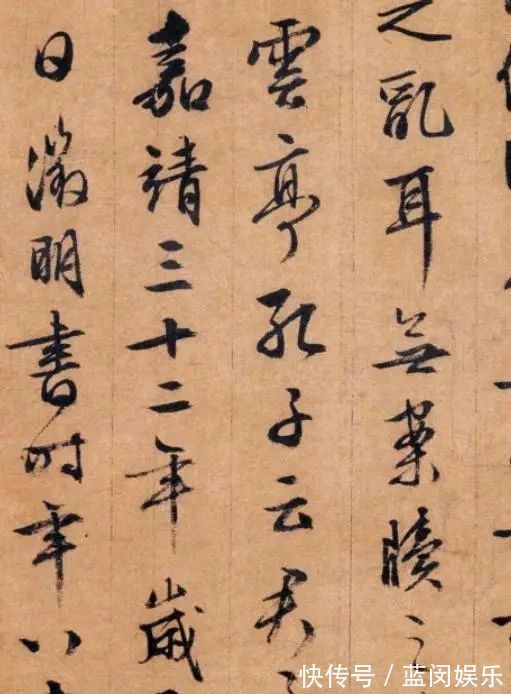 之亂耳無案牘之
雲亭孔子云
嘉靖三十二年歲
日徵明書時年八
快传号 / 蓝闵娱乐